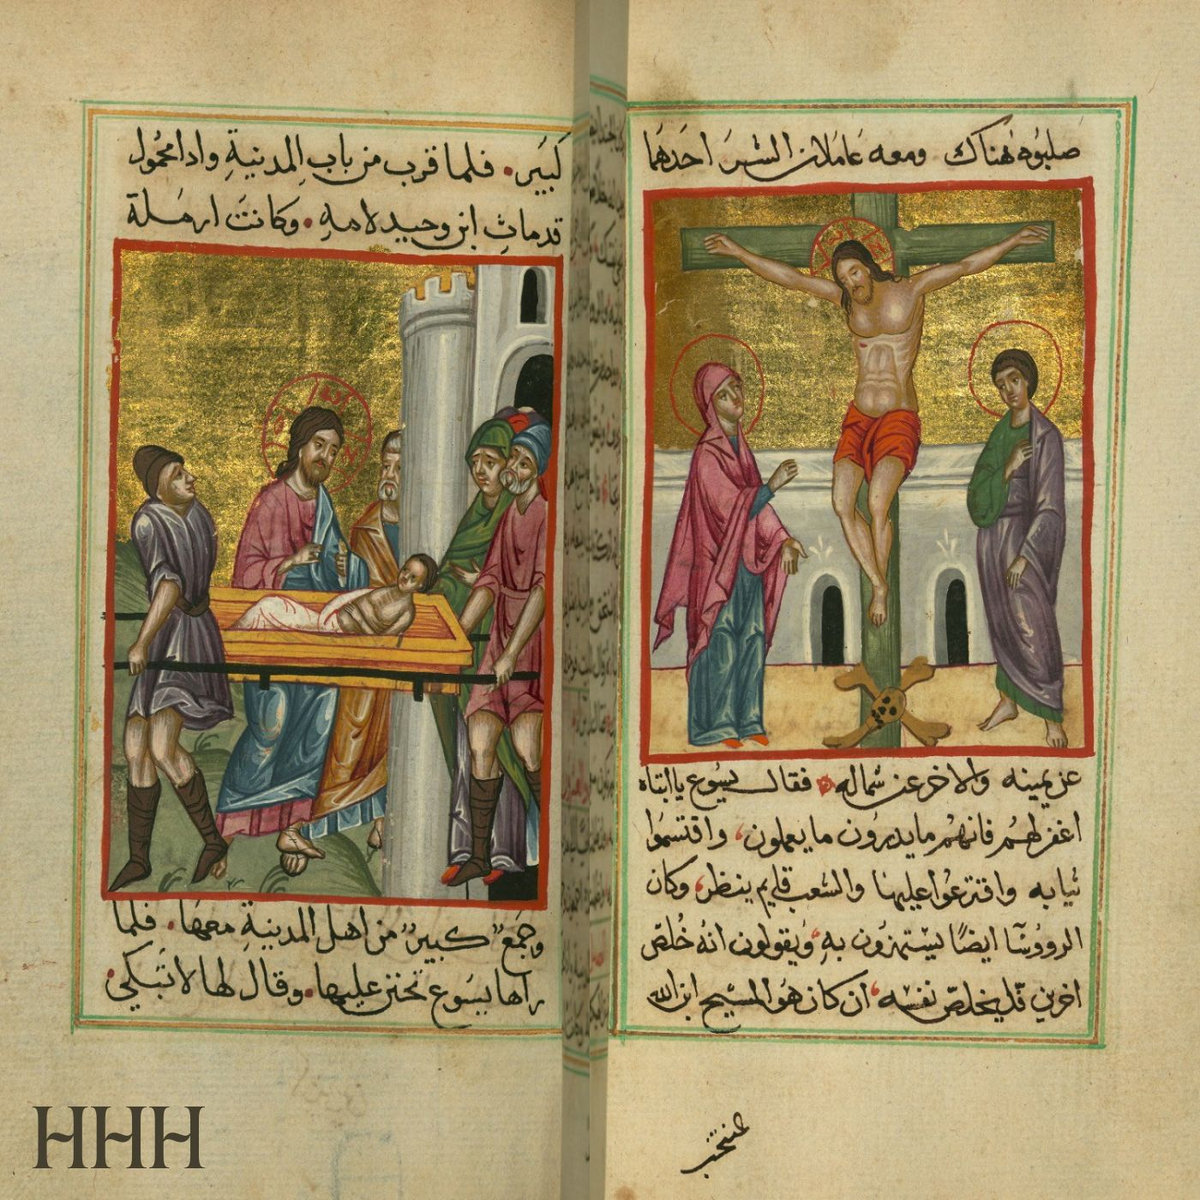 كبير. فلما قرب من باب المدينة وادا محمول
قد مات ابن وحيد لامه. وكانت ارملة
وجمع كبير من اهل المدينة معها. فلما
راها يسوع تحنن عليها. وقال لها لا تبكي.
صلبوه هناك ومعه عاملان الشر احدهما
عن يمينه والاخر عن شماله. فقال يسوع يا ابتاه
اغفر لهم فانهم ما يدرون ما يعملون، واقتسموا
ثيابه واقترعوا عليها والشعب قايم ينظر، وكان
الرووسا ايضًا يستهزون به، ويقولون انه خلص
اخرين فليخلص نفسه، ان كان هو المسيح ابن الله
HHH